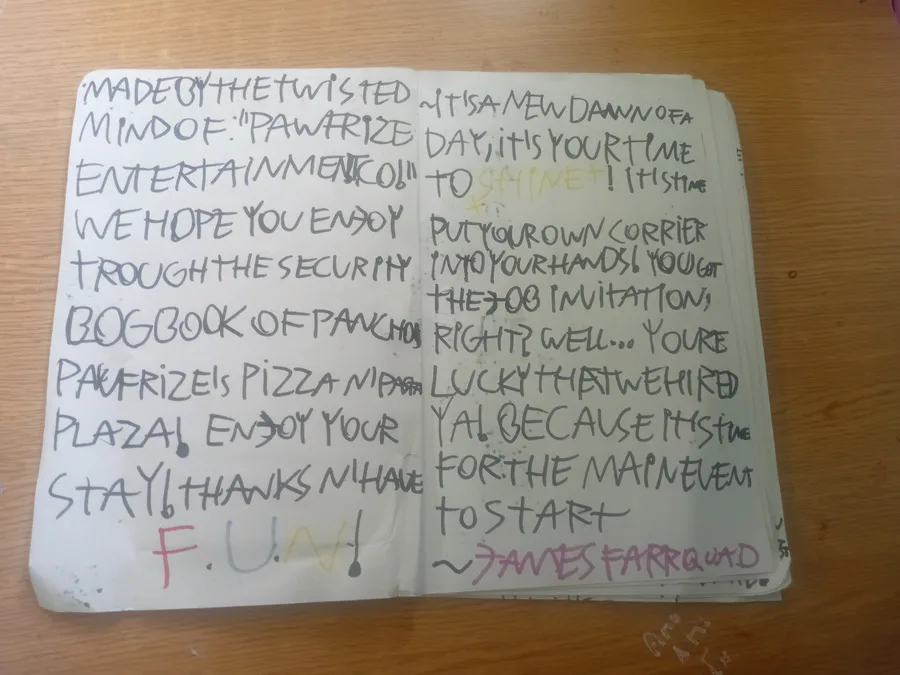 MADE BY THE TWISTED
MIND OF: "PAWFRIZE
ENTERTAINMENT CO!"
WE HOPE YOU ENJOY
TROUGH THE SECURITY
LOGBOOK OF PANCHOS
PAWFRIZE'S PIZZA N' PASTA
PLAZA! ENJOY YOUR
STAY! THANKS N' HAVE
F.U.N!
~IT'S A NEW DAWN OF A
DAY, IT'S YOUR TIME
TO SHINE! IT'S TIME
PUT YOUR OWN CORRIER
INTO YOUR HANDS! YOU GOT
THE JOB INVITATION,
RIGHT? WELL... YOURE
LUCKY THAT WE HIRED
YA! BECAUSE IT'S TIME
FOR THE MAIN EVENT
TO START
~JAMES FARRQUAD